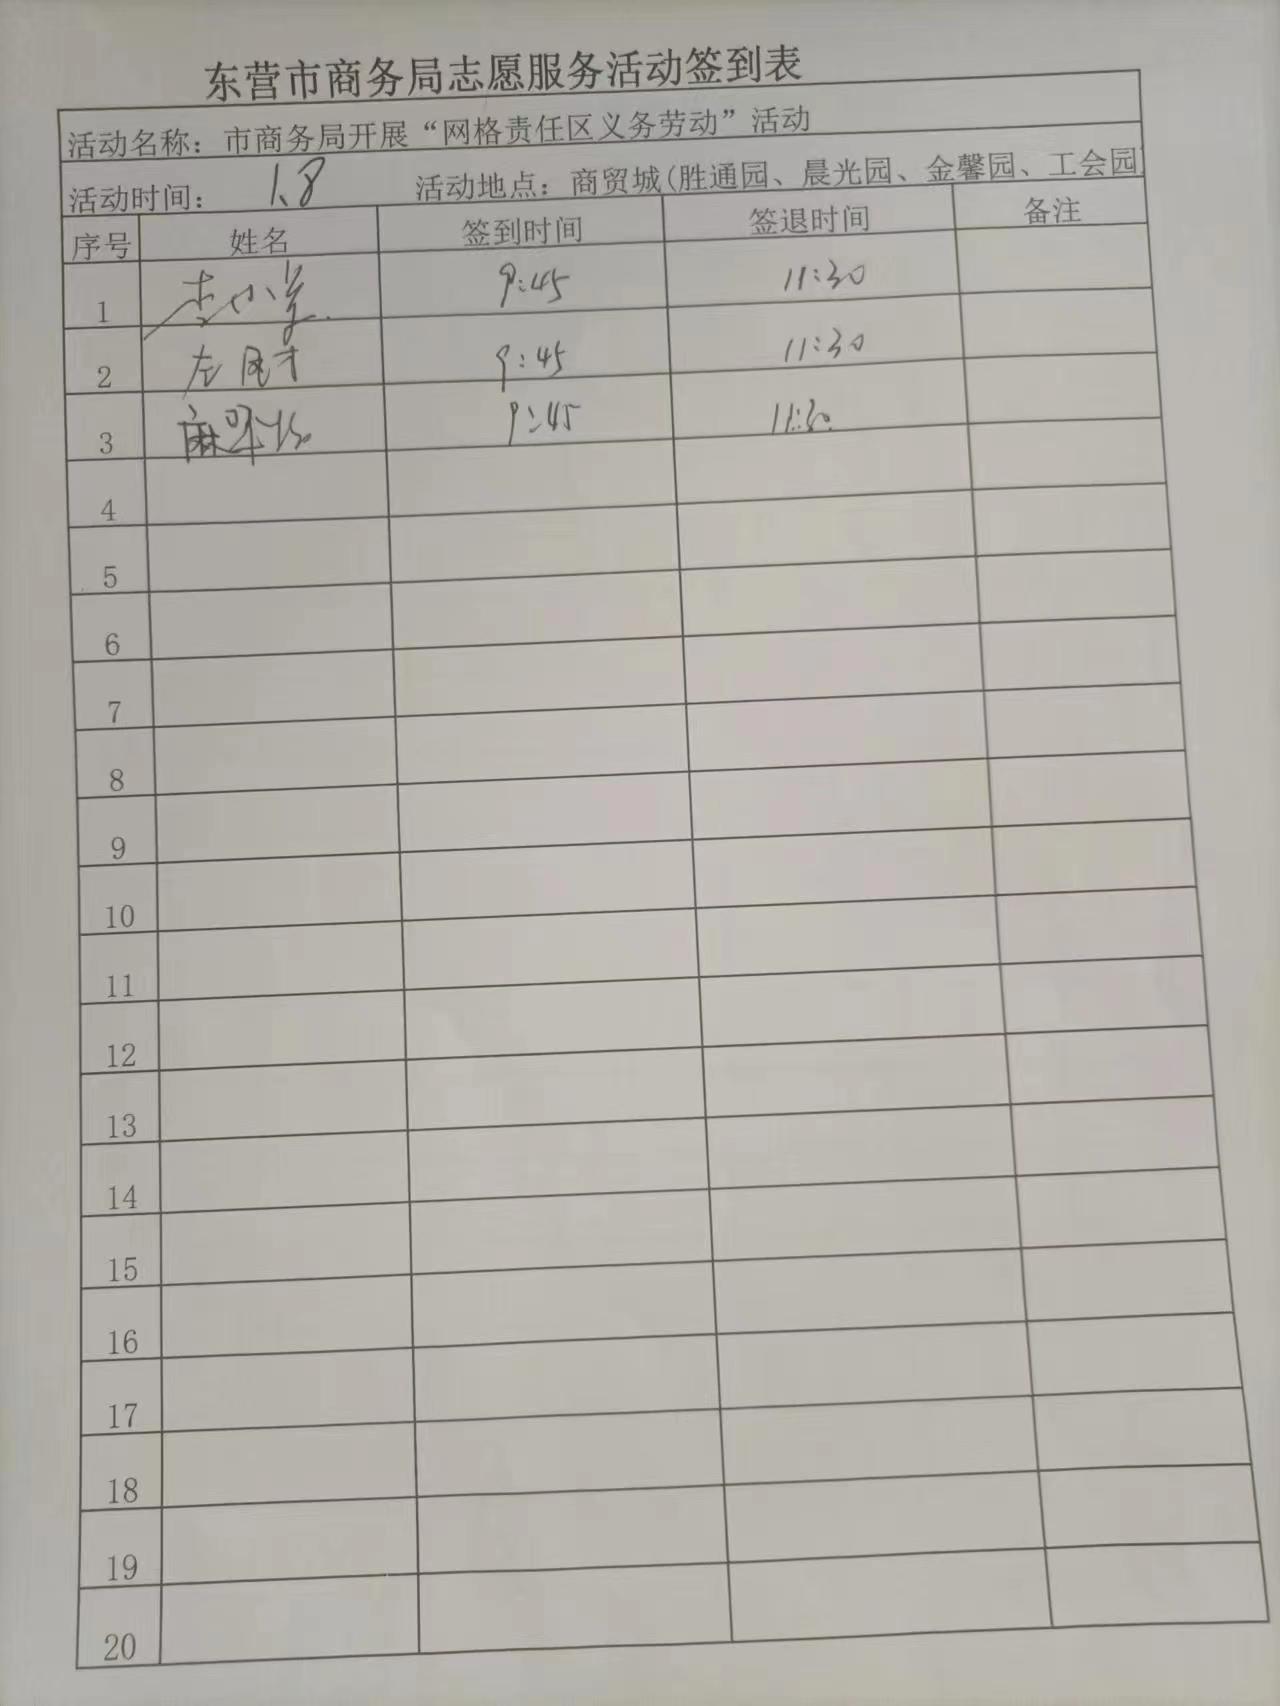 东营市商务局志愿服务活动签到表
活动名称：市商务局开展“网格责任区义务劳动”活动
活动时间： 1.8 活动地点：商贸城(胜通园、晨光园、金馨园、工会园
序号 姓名 签到时间 签退时间 备注
1 9:45 11:30
2 9:45 11:30
3 9:45 11:30
4
5
6
7
8
9
10
11
12
13
14
15
16
17
18
19
20